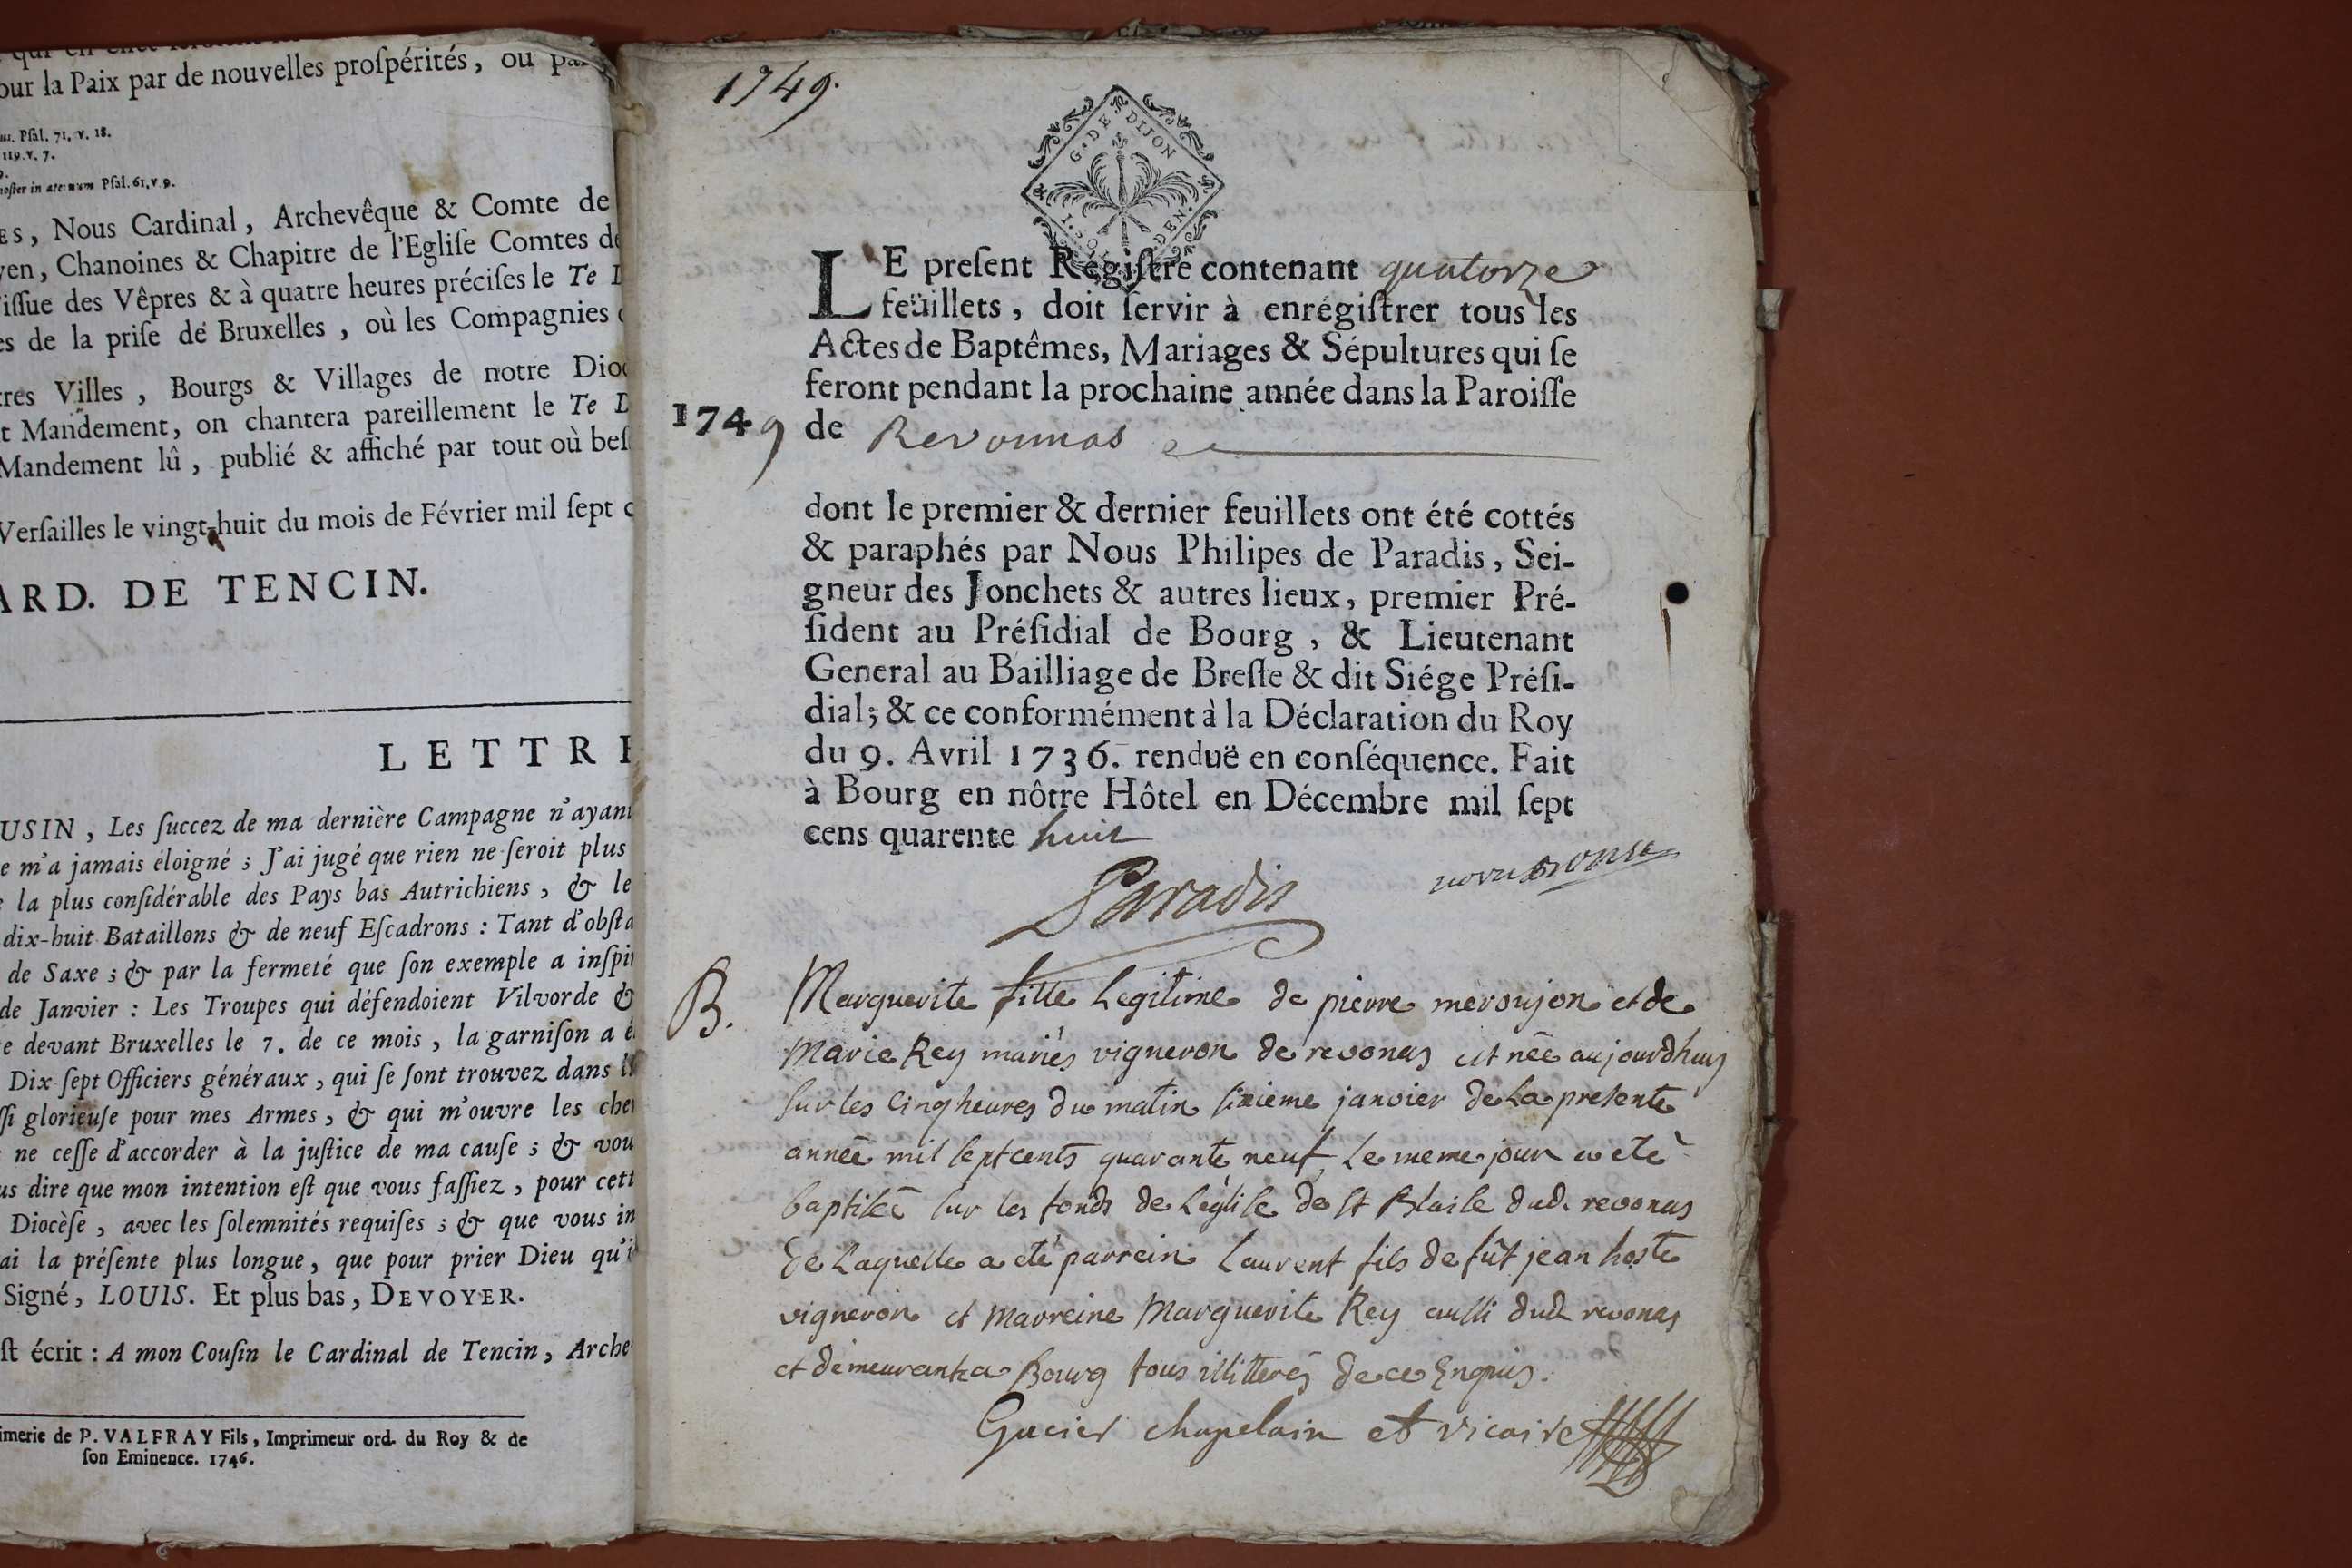 our la Paix par de nouvelles proſpérités, ou
Pſal. 71. v. 18.
119. v. 7.
noſter in æternum Pſal. 61. v. 9.
ES, Nous Cardinal, Archevêque & Comte de
yen, Chanoines & Chapitre de l'Egliſe Comtes de
iſſue des Vêpres & à quatre heures préciſes le Te D
es de la priſe de Bruxelles, où les Compagnies
tres Villes, Bourgs & Villages de notre Dioc
t Mandement, on chantera pareillement le Te D
Mandement lû, publié & affiché par tout où beſ
Verſailles le vingt-huit du mois de Février mil ſept c
ARD. DE TENCIN.
LETTRE
USIN, Les ſuccez de ma dernière Campagne n'ayant
e m'a jamais éloigné; J'ai jugé que rien ne ſeroit plus
la plus conſidérable des Pays bas Autrichiens, & le
dix-huit Bataillons & de neuf Eſcadrons : Tant d'obſta
de Saxe; & par la fermeté que ſon exemple a inſpir
de Janvier : Les Troupes qui défendoient Vilvorde &
e devant Bruxelles le 7. de ce mois, la garniſon a é
Dix ſept Officiers généraux, qui ſe ſont trouvez dans
ſſi glorieuſe pour mes Armes, & qui m'ouvre les che
ne ceſſe d'accorder à la juſtice de ma cauſe; & vou
us dire que mon intention eſt que vous faſſiez, pour cett
Diocèſe, avec les ſolemnités requiſes; & que vous in
ai la préſente plus longue, que pour prier Dieu qu'i
Signé, LOUIS. Et plus bas, DEVOYER.
ſt écrit : A mon Couſin le Cardinal de Tencin, Arche
imerie de P. VALFRAY Fils, Imprimeur ord. du Roy & de
ſon Eminence. 1746.
1749.
G. DE DIJON
DEN.
LE preſent Regiſtre contenant quatorze
feüillets, doit ſervir à enrégiſtrer tous les
Actes de Baptêmes, Mariages & Sépultures qui ſe
feront pendant la prochaine année dans la Paroiſſe
1749 de Revonnas
dont le premier & dernier feuillets ont été cottés
& paraphés par Nous Philipes de Paradis, Sei-
gneur des Jonchets & autres lieux, premier Pré-
ſident au Préſidial de Bourg, & Lieutenant
General au Bailliage de Breſſe & dit Siége Préſi-
dial; & ce conformément à la Déclaration du Roy
du 9. Avril 1736. renduë en conſéquence. Fait
à Bourg en nôtre Hôtel en Décembre mil ſept
cens quarente huit
Paradis
B. Marguerite fille Legitime de pierre meroujon et de
Marie Rey mariés vigneron de revonas est née aujourdhuy
sur les cinq heures du matin sixieme janvier de La presente
année mil sept cents quarante neuf, Le meme jour a eté
baptisée sur les fonds de Léglise de St Blaise dud. revonas
de Laquelle a eté parrein Laurent fils de fût jean hoste
vigneron et marreine Marguerite Rey aussi dud revonas
et demeurant a Bourg tous illitterés de ce Enquis.
Gacier chapelain et vicaire